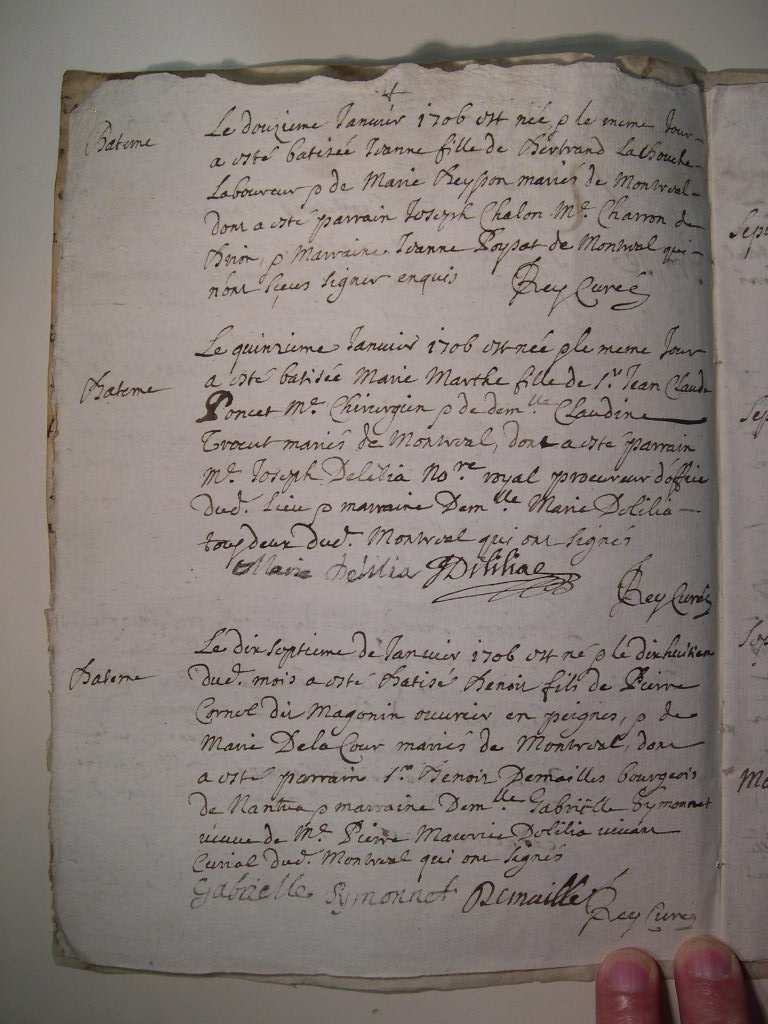 4
Bateme
Le douzieme Janvier 1706 est née & le meme Jour
a esté batisée Jeanne fille de Bertrand Labouche
Laboureur & de Marie Beysson mariés de Montreal
dont a esté parrain Joseph Chalon Me. Charron de
Brion, & Marraine Jeanne Poysat de Montreal qui
nont sçeus signer enquis Rey Curé
Bateme
Le quinzieme Janvier 1706 est née & le meme Jour
a esté batisée Marie Marthe fille de Sr. Jean Claude
Poncet Me. Chirurgien & de demlle Claudine
Trocut mariés de Montreal, dont a esté parrain
Me. Joseph Delilia Nore royal procureur doffice
dud. Lieu & marraine Demlle Marie Delilia
tous deux dud. Montreal qui ont signés
Marie Delilia JDeliliae
Rey Curé
Bateme
Le dixseptieme de Janvier 1706 est né & le dixhuitieme
dud. mois a esté Batisé Benoit fils de Pierre
Cornet dit Magonin ouvrier en peignes, & de
Marie Dela Cour mariés de Montreal, dont
a esté parrain Sr. Benoit Demailles bourgeois
de Nantua & marraine Demlle Gabriëlle Symonnet
veuve de Me. Pierre Maurice Delilia vivant
Curial dud. Montreal qui ont signés
Gabrielle Symonnet Demaille
Rey Curé
Sep
Sep
Ma